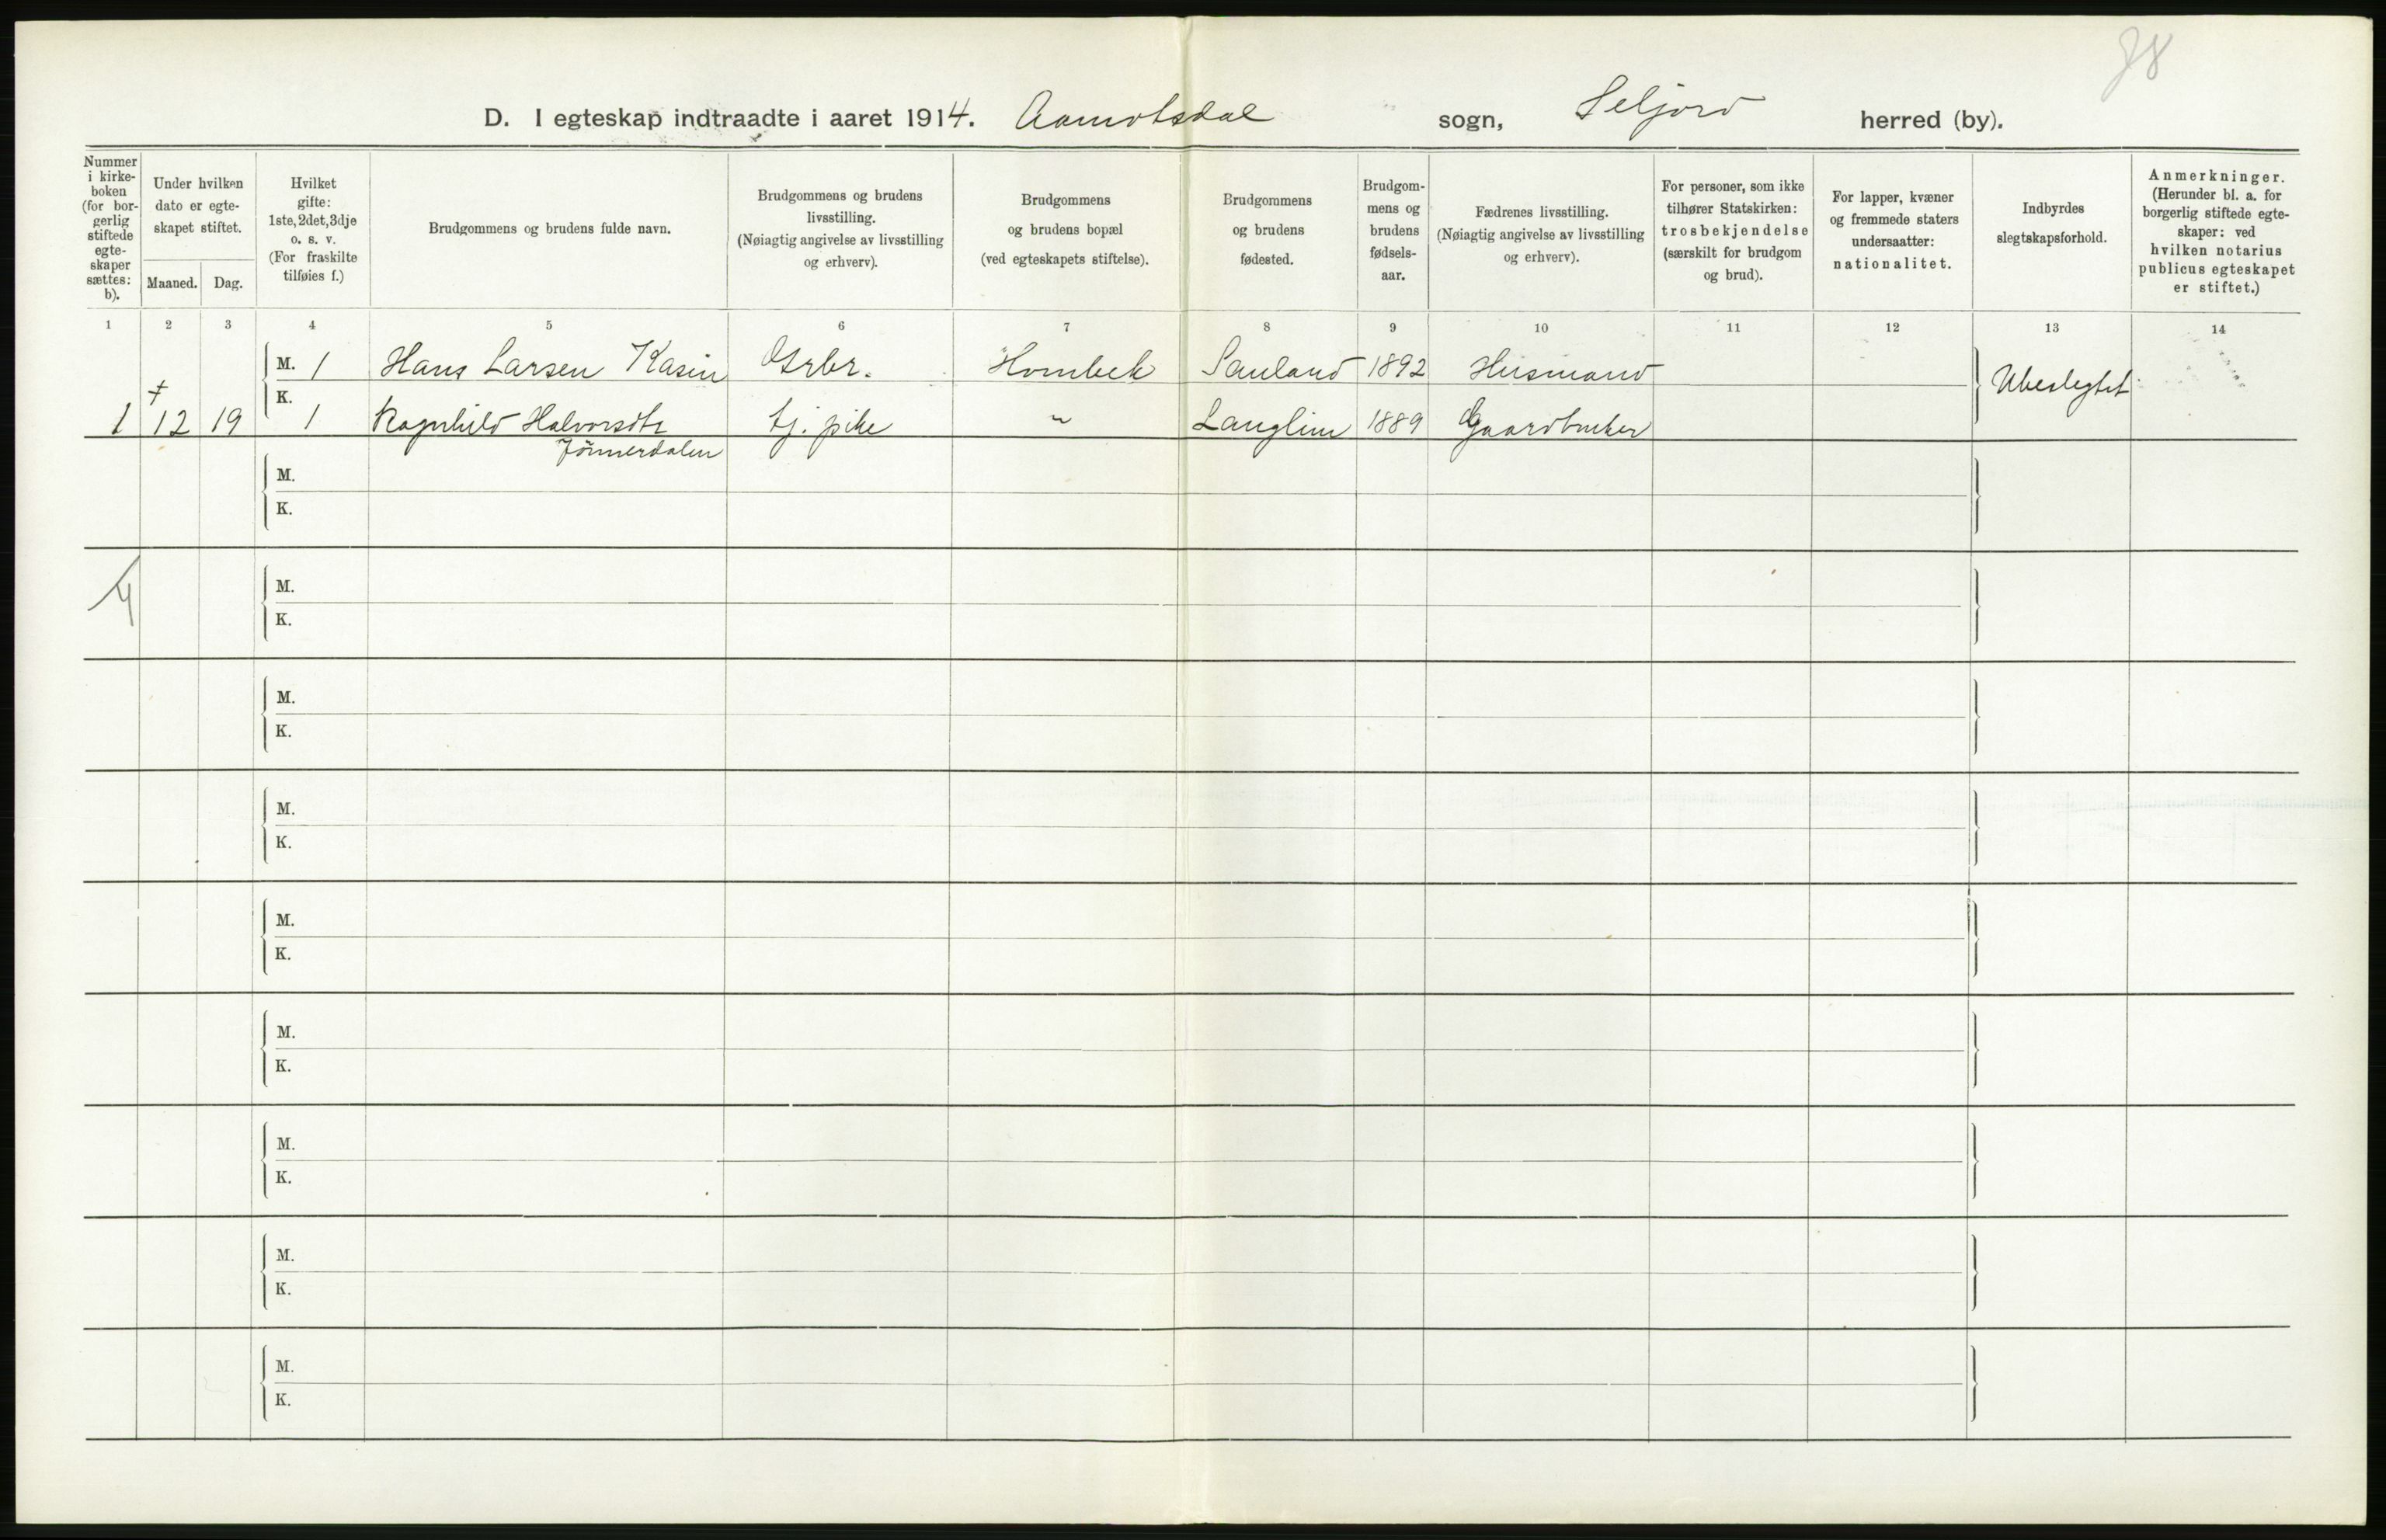 78
D. I egteskap indtraadte i aaret 1914. Aamotsdal sogn, Seljord herred (by).
Nummer i kirkeboken (for borgerlig stiftede egteskaper sættes: b).
Under hvilken dato er egteskapet stiftet.
Maaned. Dag.
Hvilket gifte: 1ste, 2det, 3dje o. s. v. (For fraskilte tilføies f.)
Brudgommens og brudens fulde navn.
Brudgommens og brudens livsstilling. (Nøiagtig angivelse av livsstilling og erhverv).
Brudgommens og brudens bopæl (ved egteskapets stiftelse).
Brudgommens og brudens fødested.
Brudgommens og brudens fødselsaar.
Fædrenes livsstilling. (Nøiagtig angivelse av livsstilling og erhverv).
For personer, som ikke tilhører Statskirken: trosbekjendelse (særskilt for brudgom og brud).
For lapper, kvæner og fremmede staters undersaatter: nationalitet.
Indbyrdes slegtskapsforhold.
Anmerkninger. (Herunder bl. a. for borgerlig stiftede egteskaper: ved hvilken notarius publicus egteskapet er stiftet.)
1 2 3 4 5 6 7 8 9 10 11 12 13 14
M. 1 Hans Larsen Kasin Hombek Sauland 1892 Husmand Ubeslegtet
K.
1 12 19 1 Ragnhild Halvorsdtr tj. pike " Langlim 1889 Gaardbruker
Jönnerdalen
M.
K.
M.
K.
M.
K.
M.
K.
M.
K.
M.
K.
M.
K.
M.
K.
M.
K.